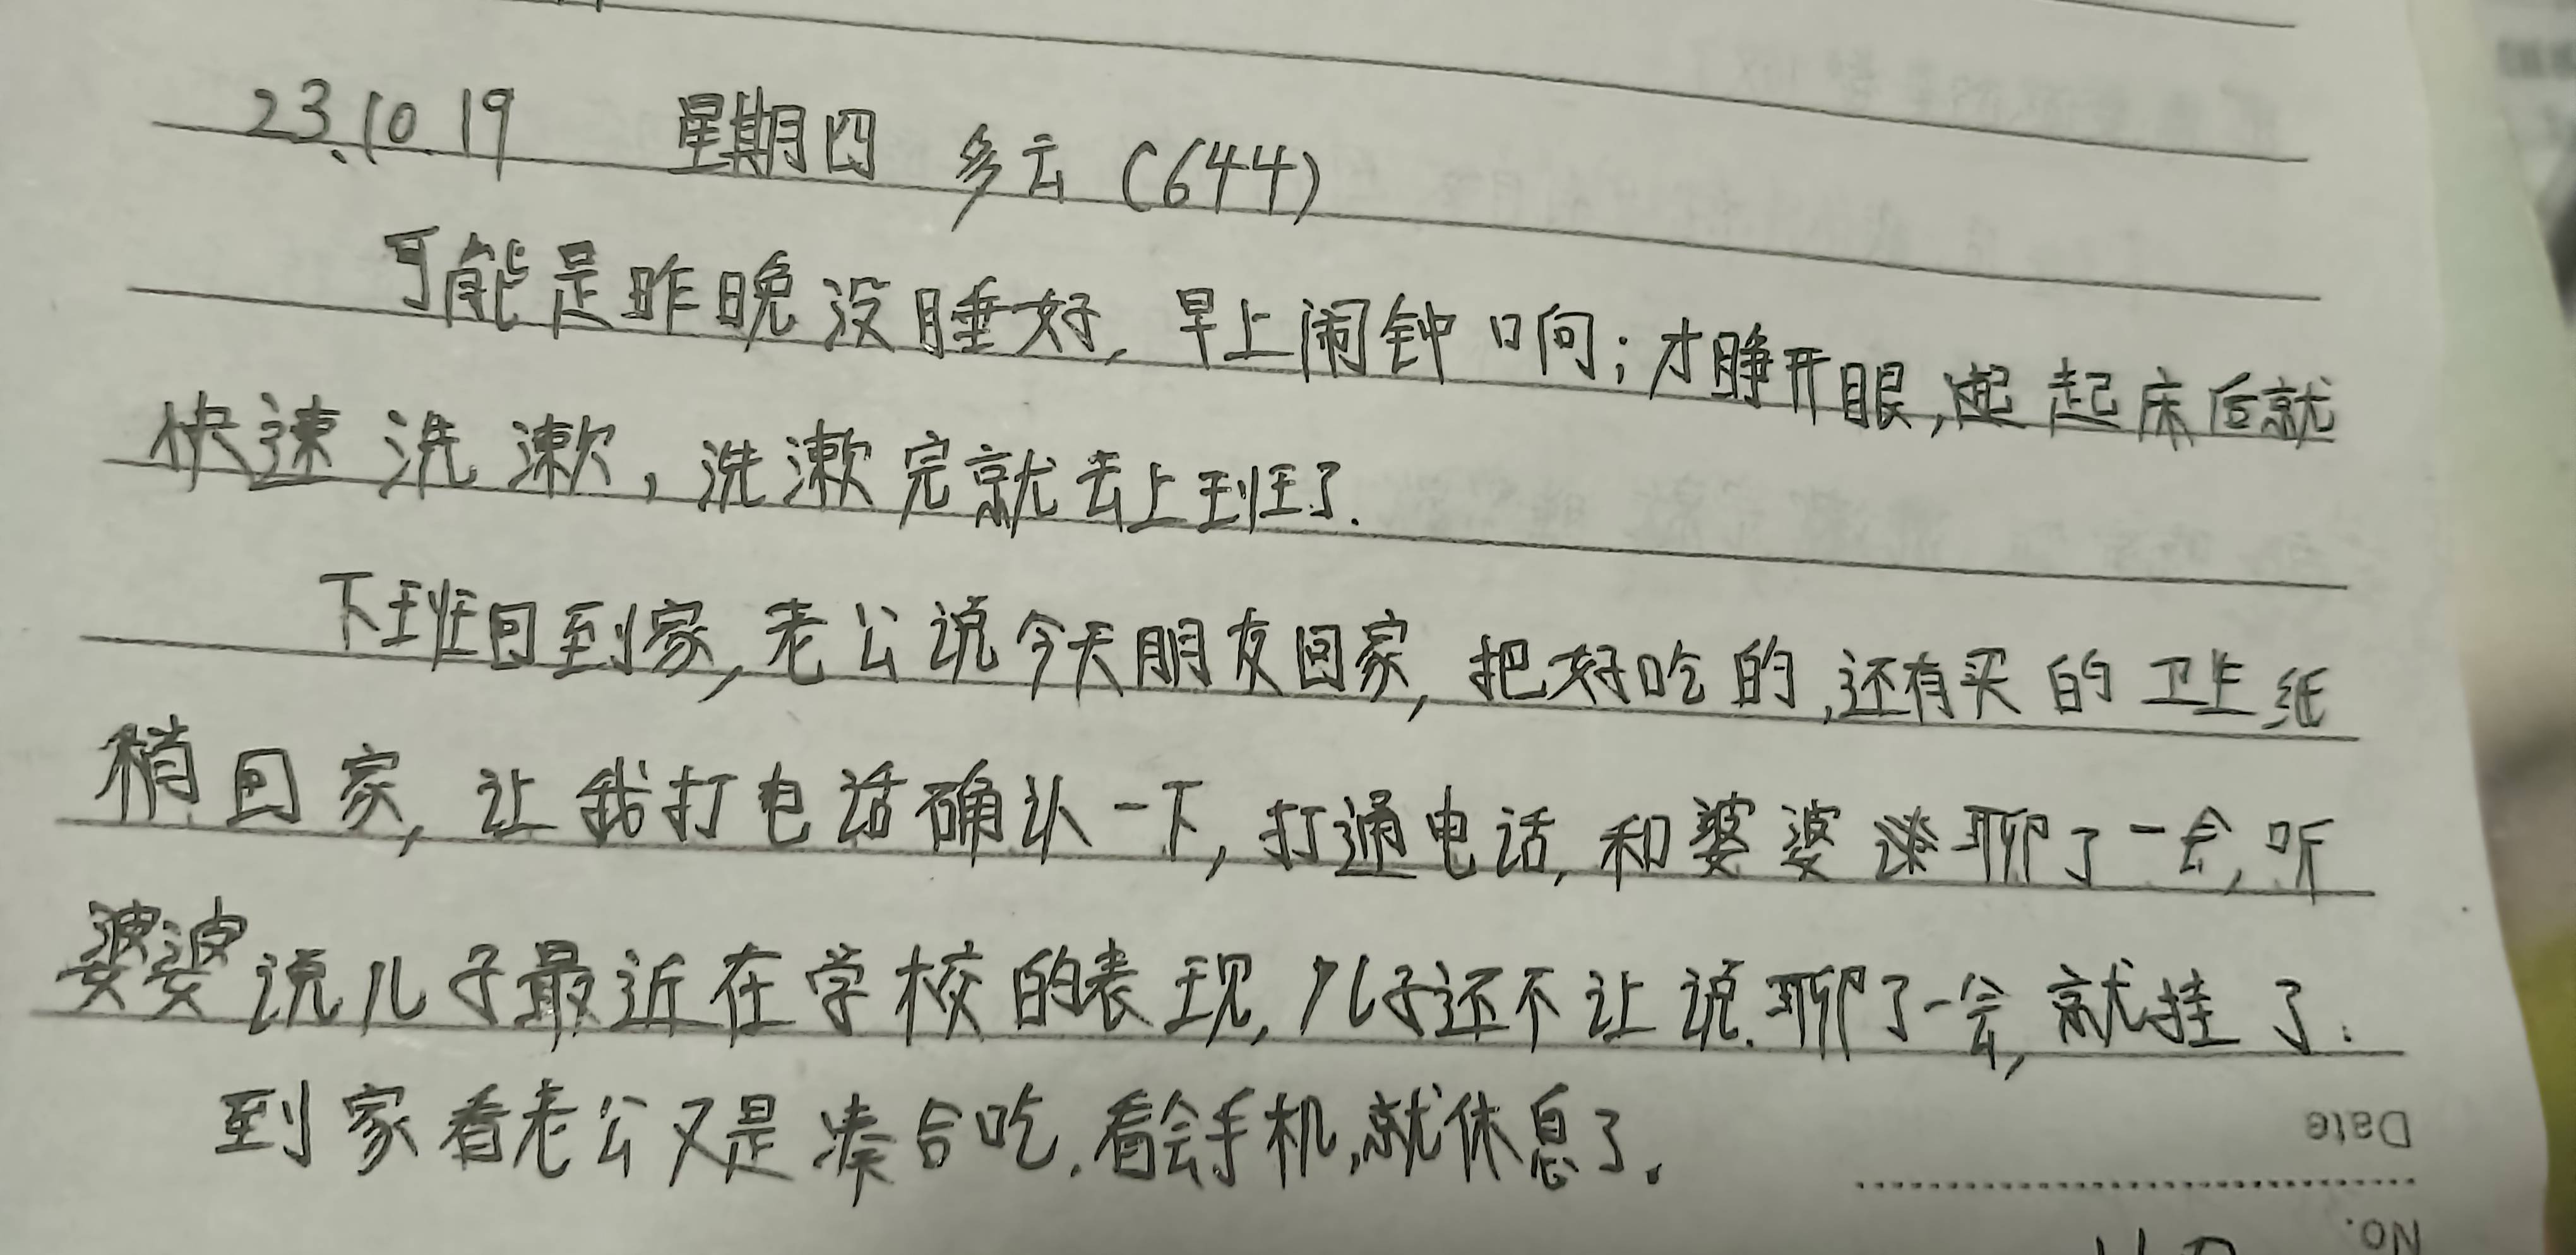 23.10.19 星期四 多云 (644)
可能是昨晚没睡好,早上闹钟响;才睁开眼,起床后就
快速洗漱,洗漱完就去上班了.
下班回到家,老公说今天朋友回家,把好吃的,还有买的卫生纸
稍回家,让我打电话确认一下,打通电话,和婆婆聊了一会,听
婆婆说儿子最近在学校的表现,儿子还不让说.聊了一会,就挂了.
到家看老公又是凑合吃.看会手机,就休息了.
Date
No.